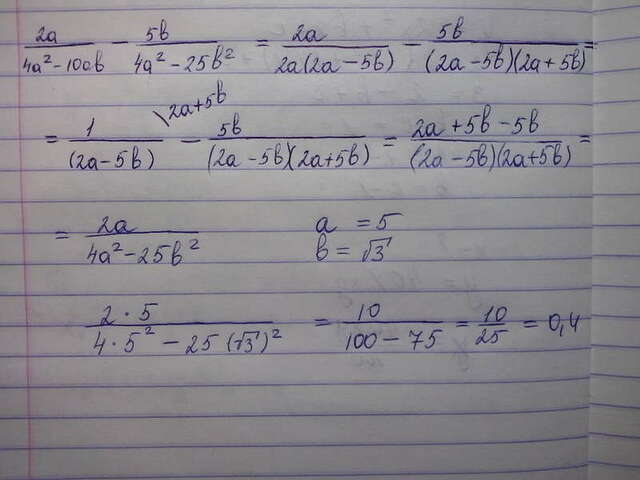 2a/(4a² - 10ab) - 5b/(4a² - 25b²) = 2a/(2a(2a - 5b)) - 5b/((2a - 5b)(2a + 5b)) =
= 1/(2a - 5b) \2a+5b - 5b/((2a - 5b)(2a + 5b)) = (2a + 5b - 5b)/((2a - 5b)(2a + 5b)) =
= 2a/(4a² - 25b²) a = 5
b = √3
(2 · 5)/(4 · 5² - 25(√3)²) = 10/(100 - 75) = 10/25 = 0,4